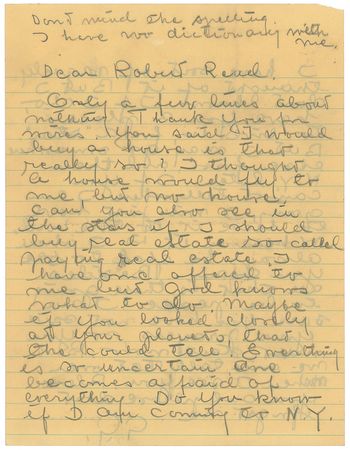 Dont mind the spelling.
I have no dictionary with
me.
Dear Robert Reud.
Only a few lines about
nothing. Thank you for
wires. You said I would
buy a house is that
really so? I thought
a house would fly to
me, but no house.
Can you also see in
the stars if I should
buy real estate so called
paying real estate. I
have one offered to
me but god knows
what to do. Maybe
if you looked closely
at your planets, that
she could tell. Everything
is so uncertain one
becomes afraid of
everything. Do you know
if I am coming to N.Y.